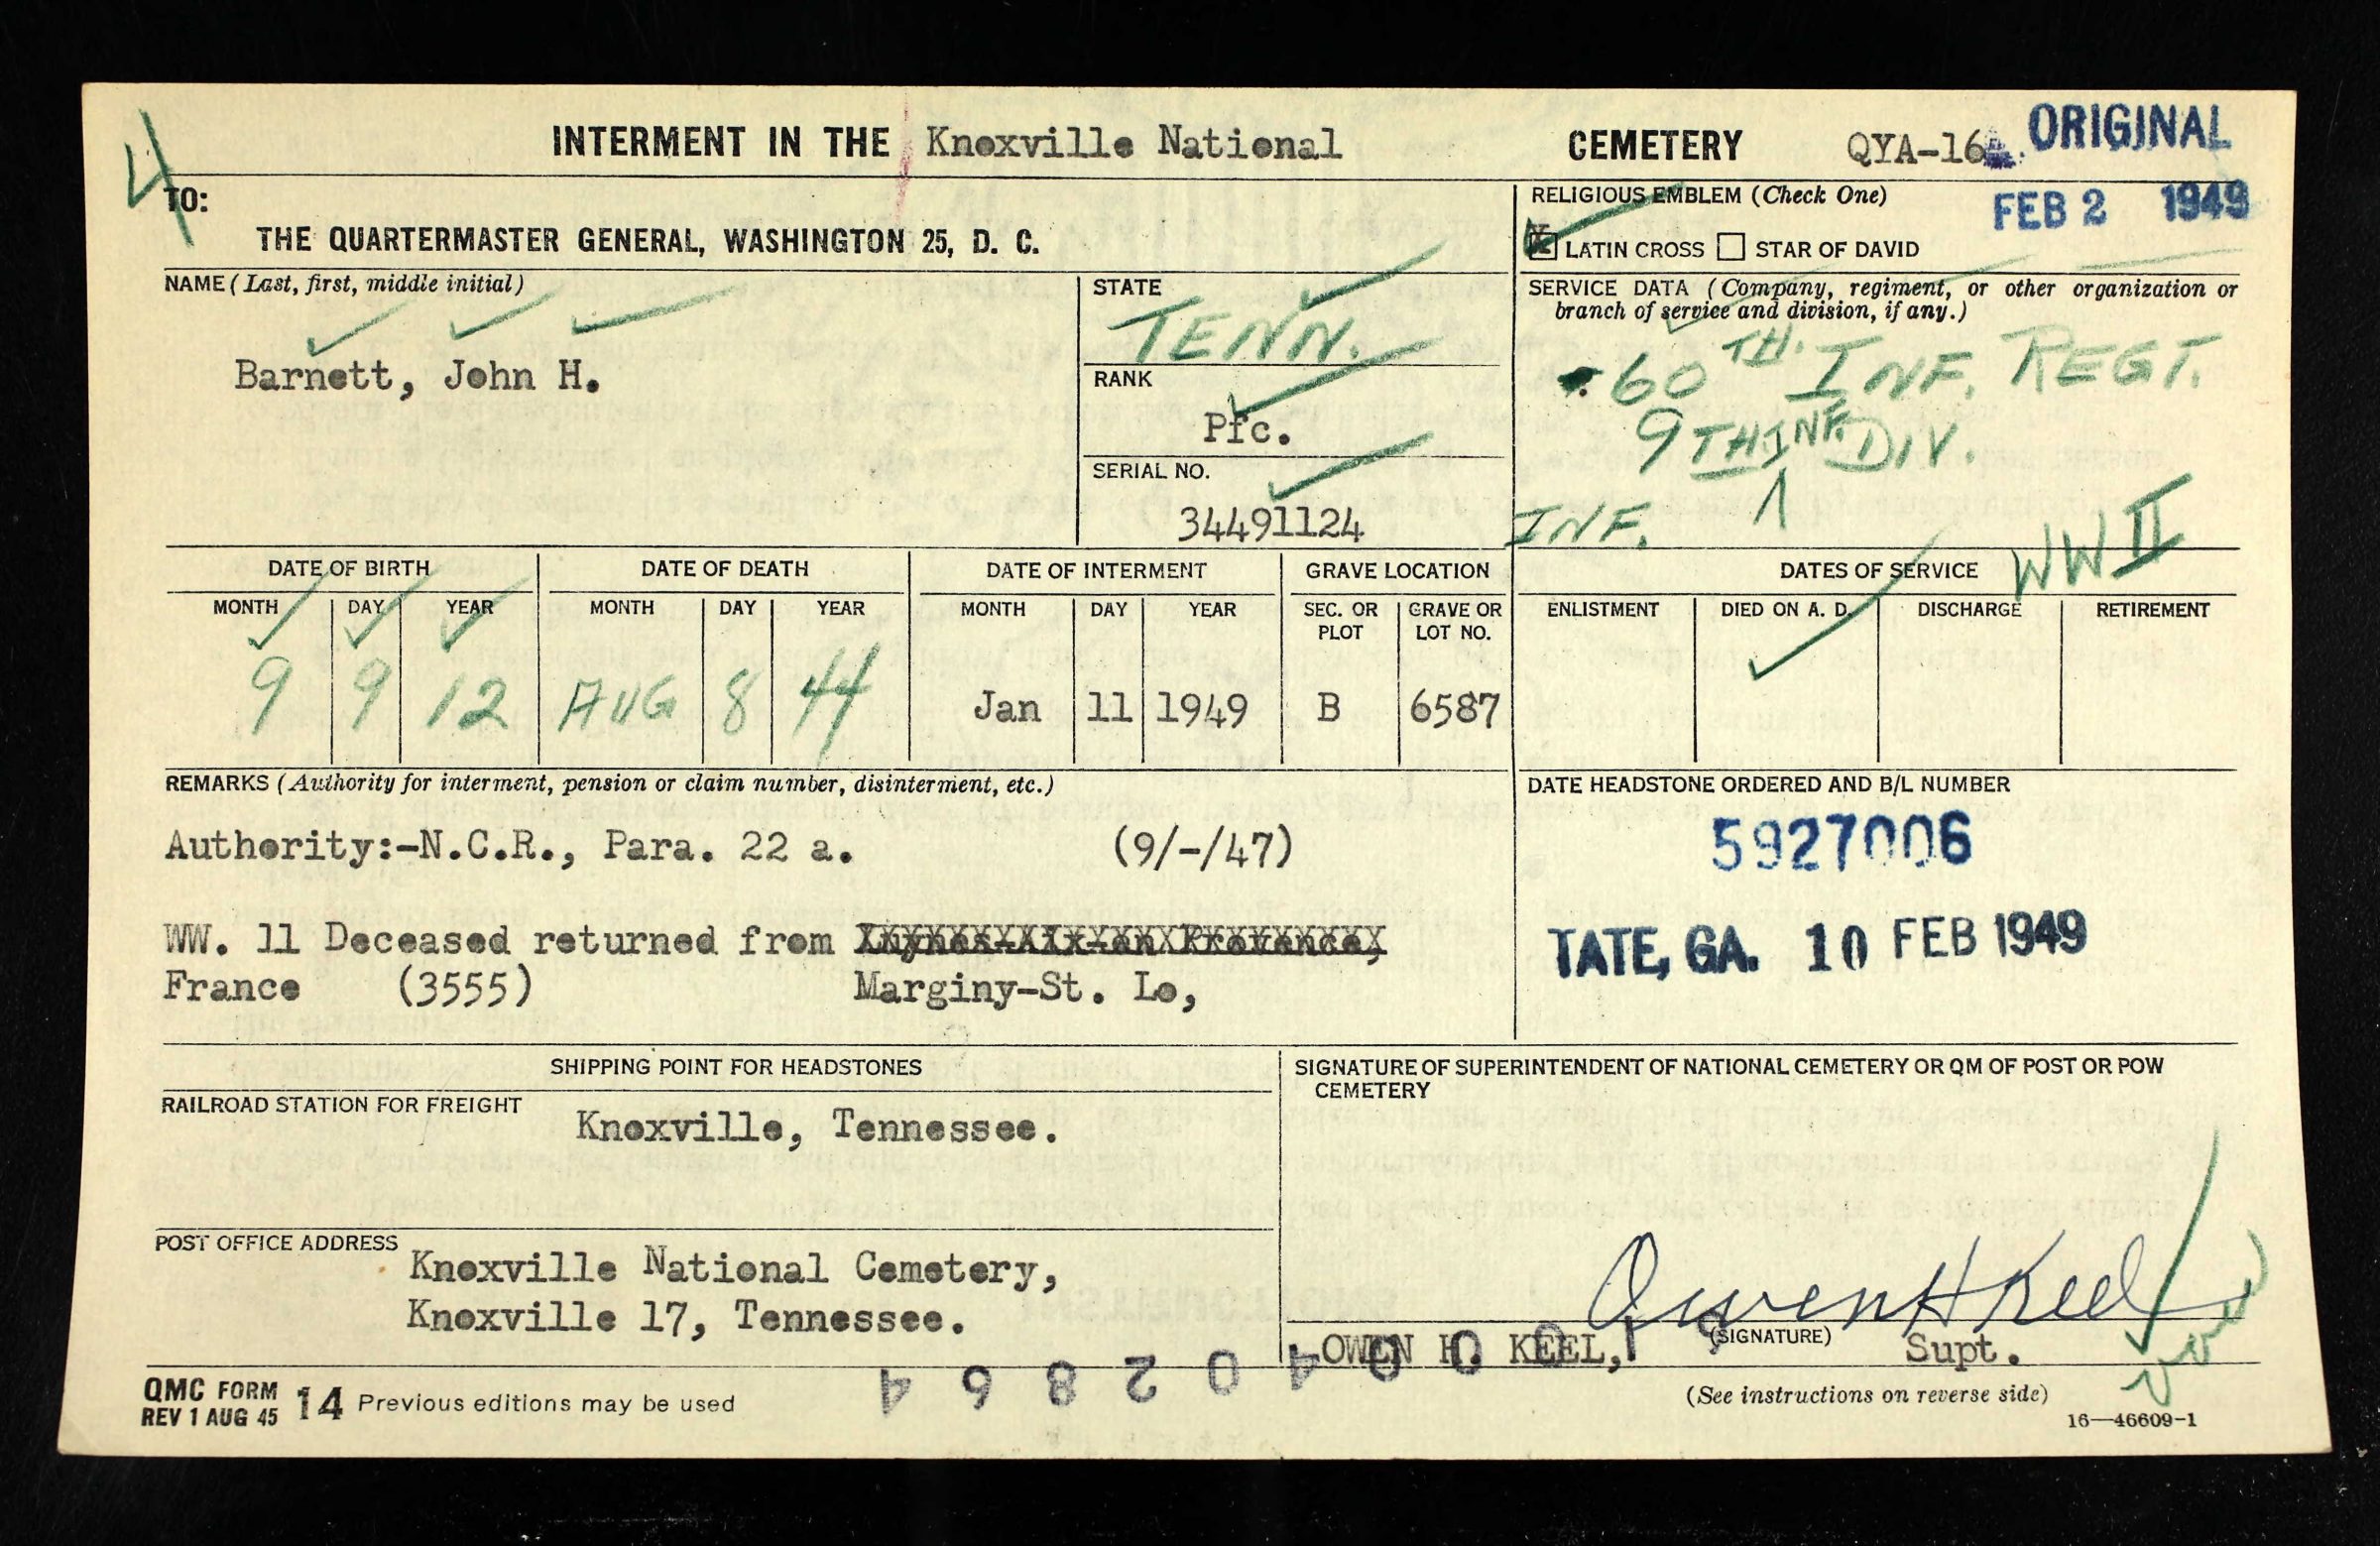 4
INTERMENT IN THE Knoxville National CEMETERY QYA-16 ORIGINAL
TO:
THE QUARTERMASTER GENERAL, WASHINGTON 25, D. C.
RELIGIOUS EMBLEM (Check One) FEB 2 1949
X LATIN CROSS STAR OF DAVID
NAME (Last, first, middle initial)
Barnett, John H.
STATE
TENN.
RANK
Pfc.
SERIAL NO.
34491124
SERVICE DATA (Company, regiment, or other organization or
branch of service and division, if any.)
60TH. INF. REGT.
9TH INF. DIV.
INF.
WW II
DATE OF BIRTH DATE OF DEATH DATE OF INTERMENT GRAVE LOCATION DATES OF SERVICE
MONTH DAY YEAR MONTH DAY YEAR MONTH DAY YEAR SEC. OR PLOT GRAVE OR LOT NO. ENLISTMENT DIED ON A. D. DISCHARGE RETIREMENT
9 9 12 AUG 8 44 Jan 11 1949 B 6587
REMARKS (Authority for interment, pension or claim number, disinterment, etc.)
Authority:-N.C.R., Para. 22 a. (9/-/47)
WW. 11 Deceased returned from
France (3555) Marginy-St. Lo,
DATE HEADSTONE ORDERED AND B/L NUMBER
5927006
TATE, GA. 10 FEB 1949
SHIPPING POINT FOR HEADSTONES
RAILROAD STATION FOR FREIGHT
Knoxville, Tennessee.
POST OFFICE ADDRESS
Knoxville National Cemetery,
Knoxville 17, Tennessee.
SIGNATURE OF SUPERINTENDENT OF NATIONAL CEMETERY OR QM OF POST OR POW
CEMETERY
Owen H Keel
OWEN H. KEEL, (SIGNATURE) Supt.
QMC FORM 14 Previous editions may be used
REV 1 AUG 45
(See instructions on reverse side)
16—46609-1